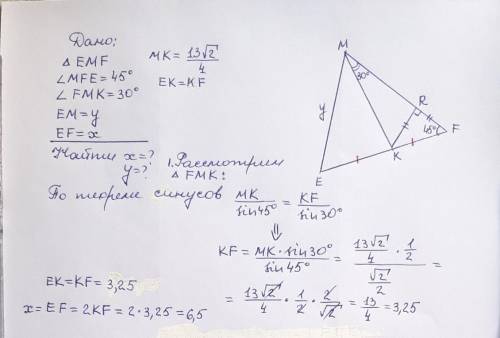 Дано:
△ EMF
MK = 13√2/4
∠MFE = 45°
EK = KF
∠ FMK = 30°
EM = y
EF = x
Найти x = ?
y = ?
1. Рассмотрим
△ FMK:
По теореме синусов MK/sin45° = KF/sin30°
⇓
KF = MK · sin30°/sin45° = (13√2/4 · 1/2)/(√2/2) =
= 13√2/4 · 1/2 · 2/√2 = 13/4 = 3,25
EK = KF = 3,25
x = EF = 2KF = 2 · 3,25 = 6,5
M
30°
y
R
45°
F
K
E